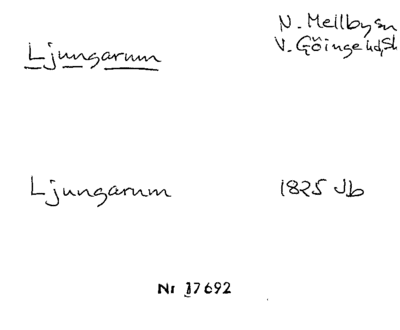 Ljungarum
N. Mellby sn
V. Göinge hd, Sk
Ljungarum
1825 Jb
Nr 17692